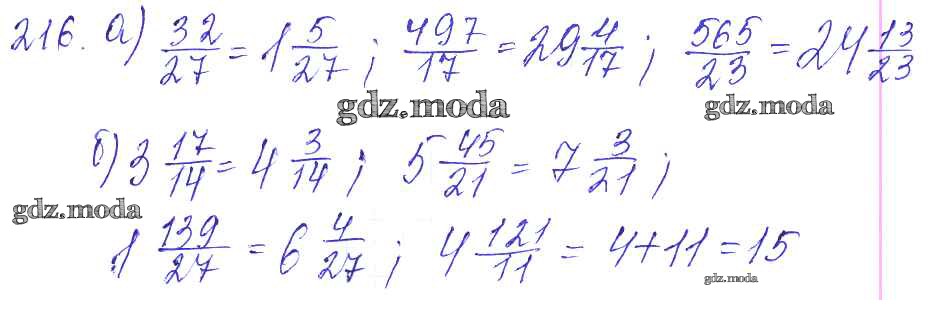 216. а) 32/27 = 1 5/27; 497/17 = 29 4/17; 565/23 = 24 13/23
gdz.moda gdz.moda
б) 3 17/14 = 4 3/14; 5 45/21 = 7 3/21;
gdz.moda
1 139/27 = 6 4/27; 4 121/11 = 4+11 = 15
gdz.moda